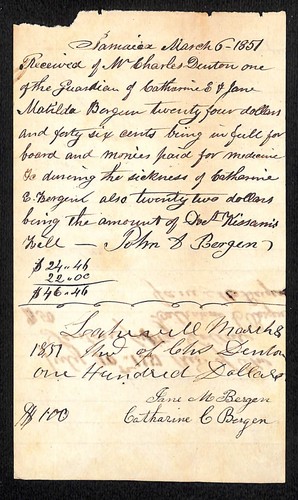 Jamaica March 6-1851
Received of Mr Charles Denton one
of the Guardian of Catharine E & Jane
Matilda Bergen twenty four dollars
and forty six cents being in full for
board and monies paid for medicine
&c durering the sickness of Catharine
E Bergen also twenty two dollars
being the amount of Doct Kissam's
Bill — John D Bergen
$24.46
22.00
$46.46
March 8
1851 of Chs Denton
one Hundred Dollars
Jane M Bergen
$100 Catharine C Bergen